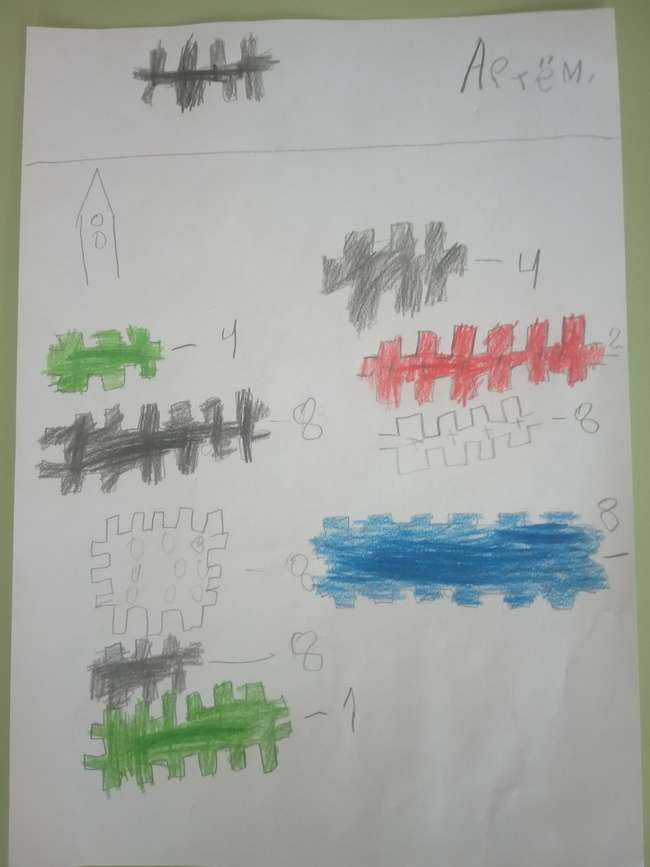 Артём.
- 4
- 4
2
- 8
- 8
8 -
- 8
- 8
- 1